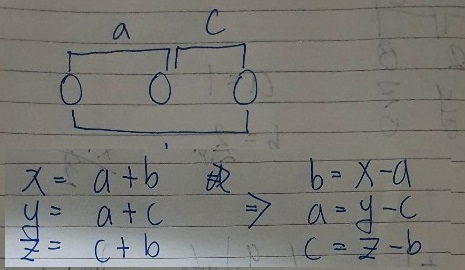 a c
O O O
x = a + b b = x - a
y = a + c ⇒ a = y - c
z = c + b c = z - b